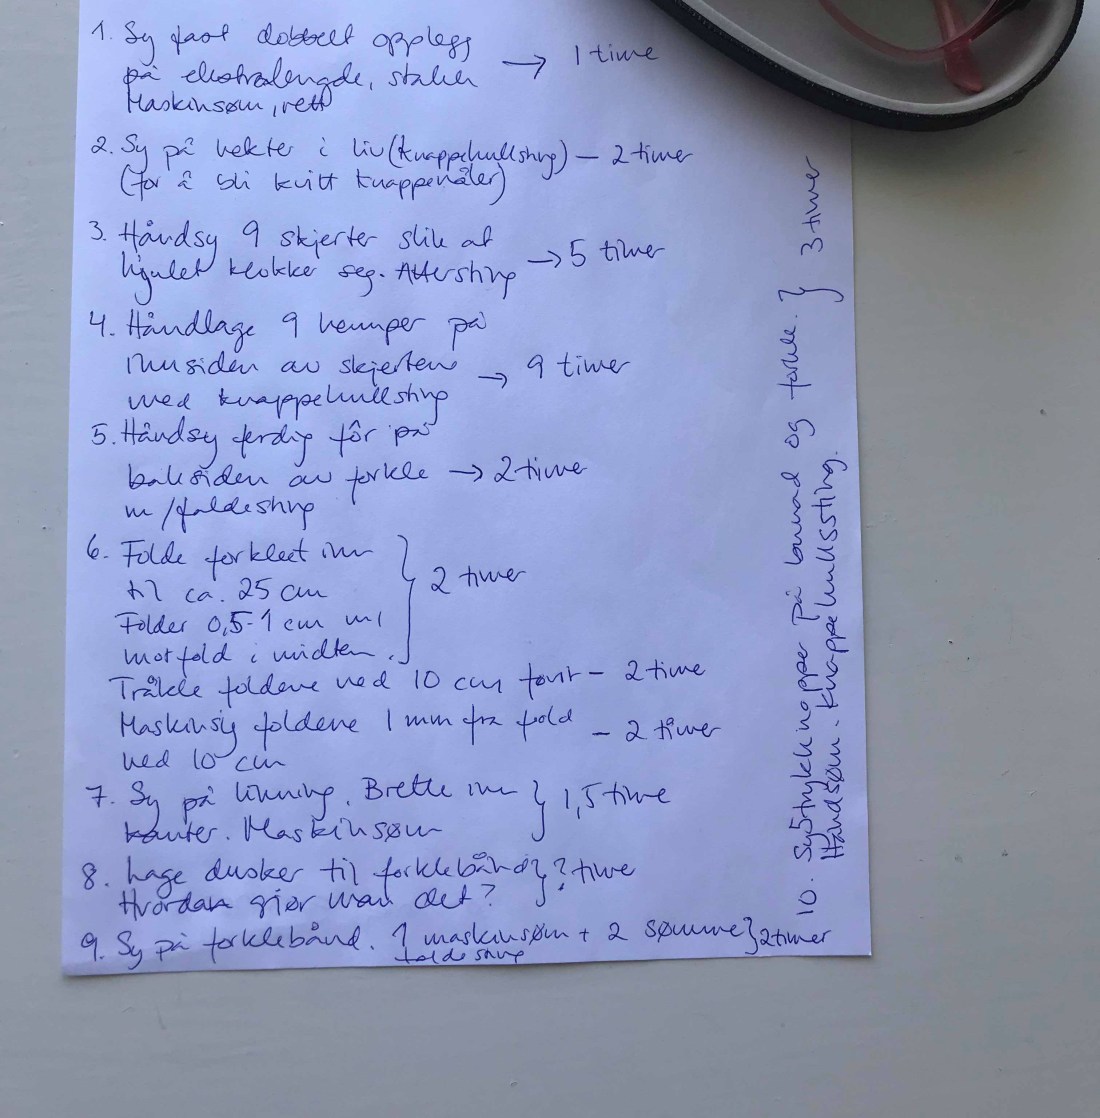 1. Sy fast dobbelt opplegg
på ekstralengde, staken → 1 time
Maskinsøm, rett
2. Sy på hekter i liv (knappehullsting) – 2 timer
(for å bli kvitt knappenåler)
3. Håndsy 9 skjerter slik at
livet klokker seg. Attersting → 5 timer
4. Håndlage 9 hemper på
innsiden av skjerten → 9 timer
med knappehullsting
5. Håndsy ferdig fôr på
baksiden av forkle → 2 time
m/faldesting
6. Folde forkleet inn
til ca. 25 cm } 2 timer
Folder 0,5-1 cm m/
motfold i midten.
Tråkle foldene ned 10 cm – 2 time
Maskinsy foldene 1 mm fra fold – 2 timer
ned 10 cm
7. Sy på linning. Brette inn } 1,5 time
kanter. Maskinsøm
8. Lage dusker til forklebånd } ? time
Hvordan gjør man det?
9. Sy på forklebånd. 1 maskinsøm + 2 sømme } 2 timer
faldesting
10. Sy 5 trykknapper på bunad og forkle. } 3 timer
Håndsøm. Knappehullssting.